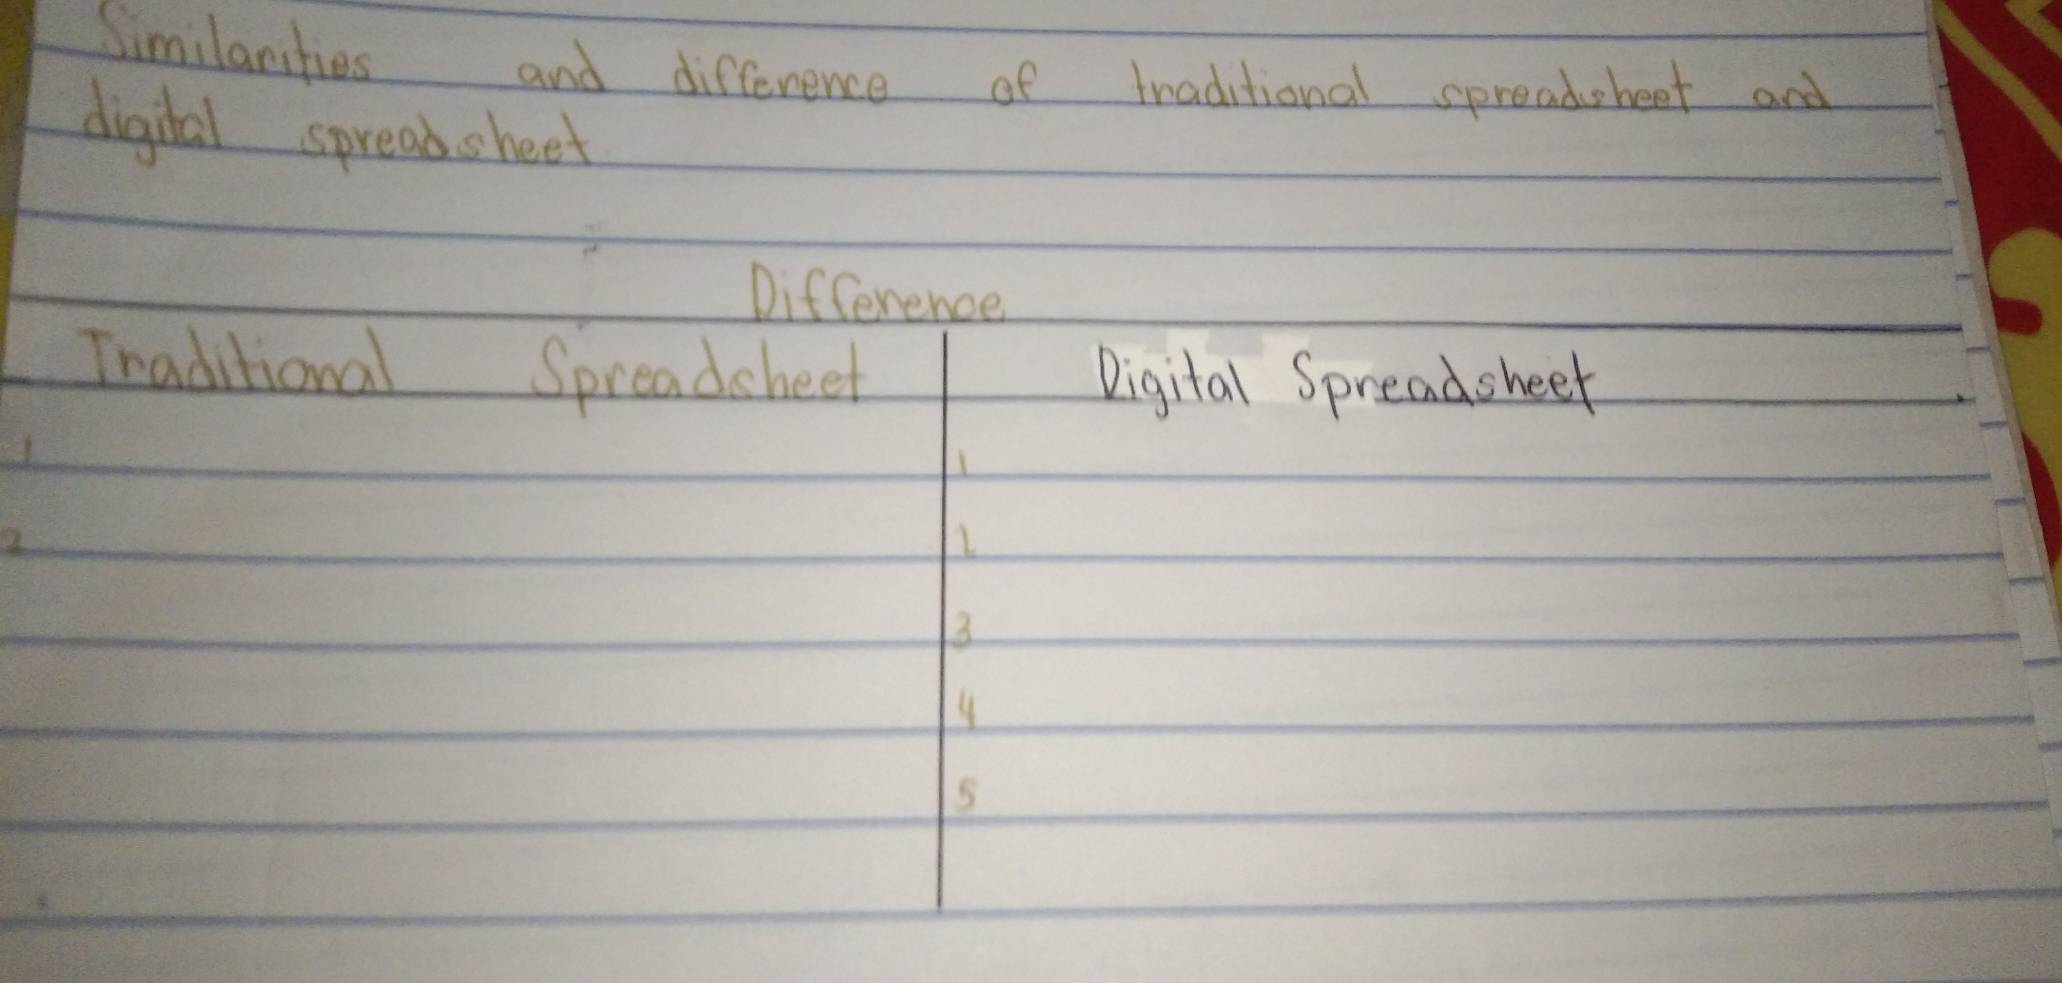 Similarities and difference of traditional spreadsheet and
digital spreadsheet
Difference
Traditional Spreadsheet Digital Spreadsheet
1 1
2 2
3
4
5